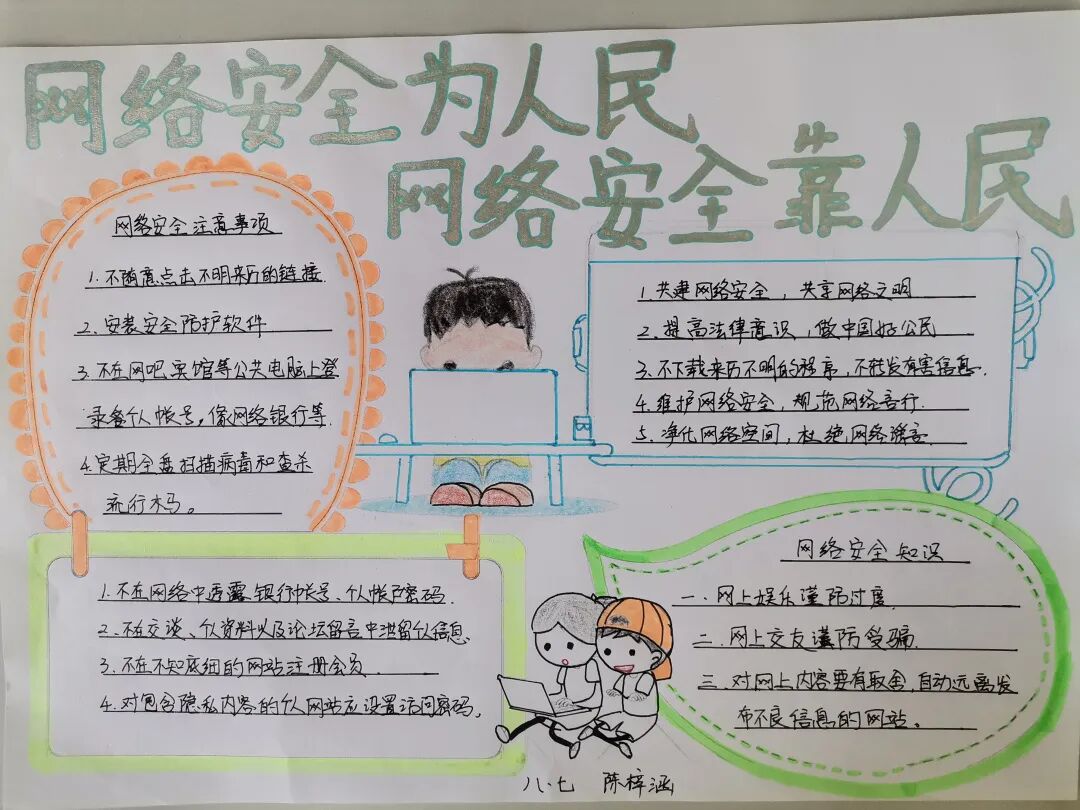 网络安全为人民
网络安全靠人民
网络安全注意事项
1.不随意点击不明来历的链接.
2.安装安全防护软件
3.不在网吧宾馆等公共电脑上登
录个人帐号,像网络银行等.
4.定期全盘扫描病毒和查杀
流行木马。
1.共建网络安全,共享网络文明
2.提高法律意识,做中国好公民
3.不下载来历不明的程序,不转发有害信息.
4.维护网络安全,规范网络言行.
5.净化网络空间,杜绝网络谣言.
1.不在网络中透露银行帐号、个人帐户密码.
2.不在交谈、个人资料以及论坛留言中泄留个人信息
3.不在不知底细的网站注册会员.
4.对包含隐私内容的个人网站应设置访问密码。
网络安全知识
一.网上娱乐谨防过度.
二.网上交友谨防受骗.
三.对网上内容要有取舍,自动远离发
布不良信息的网站。
八.七 陈梓涵